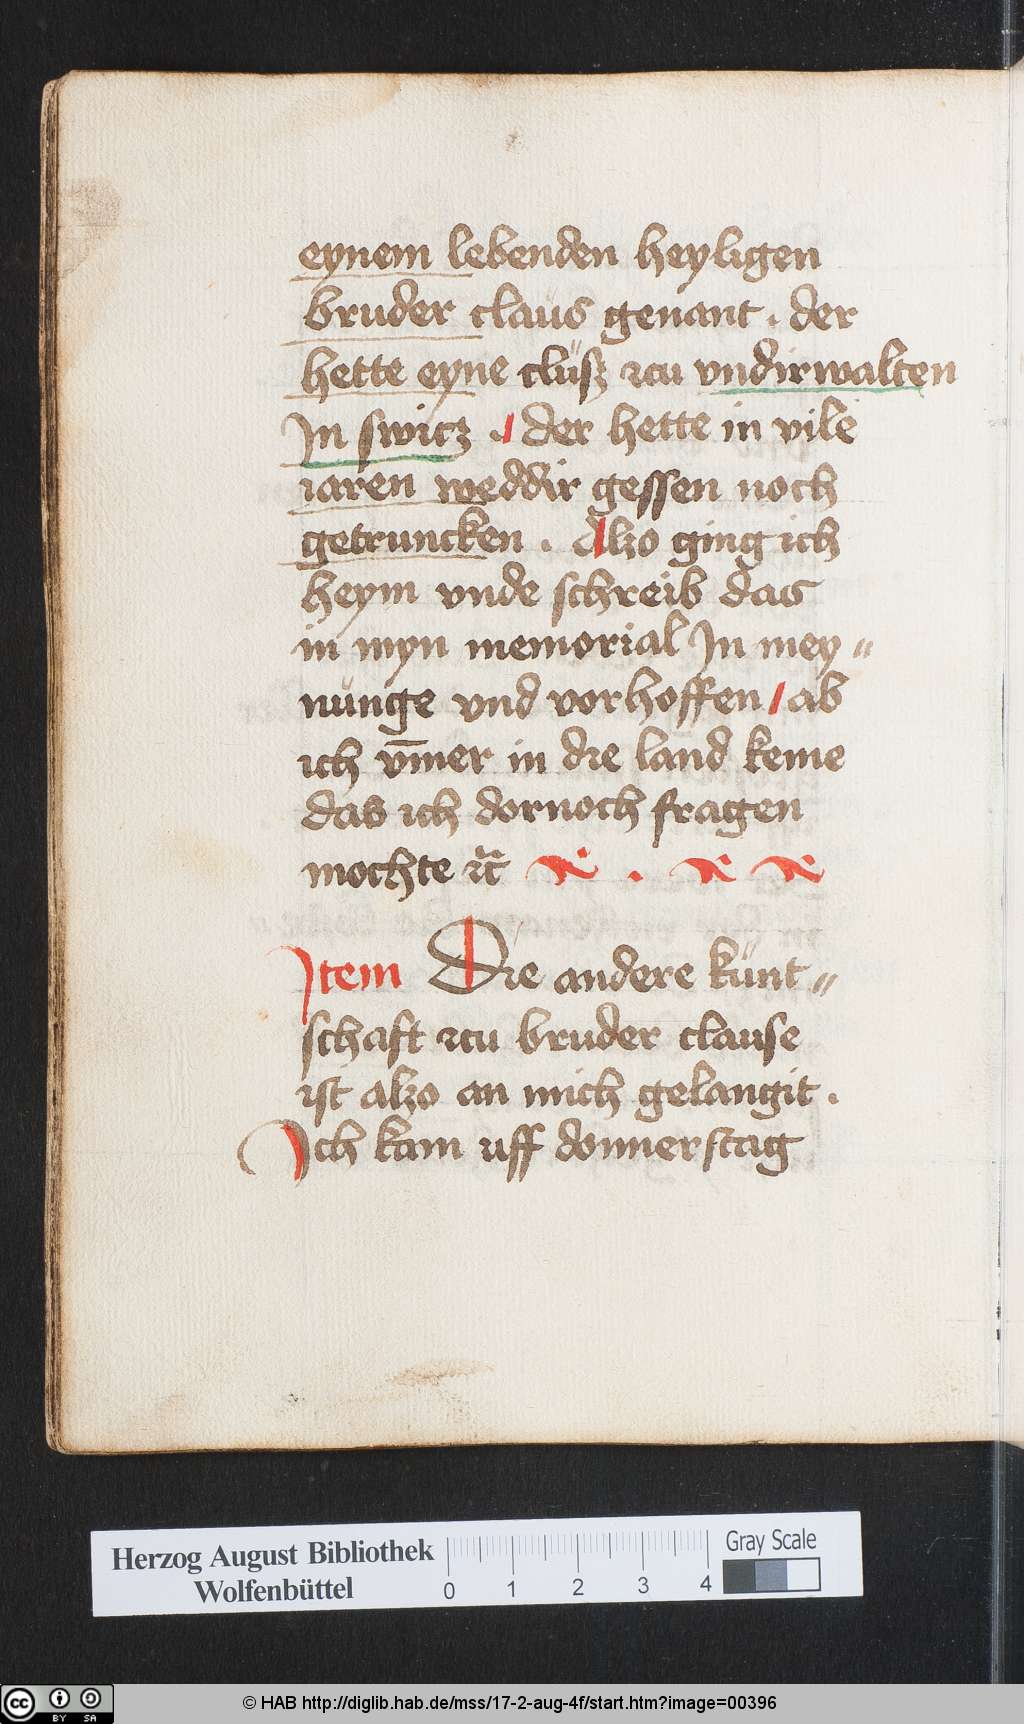 eynem lebenden heyligen
bruder claüs genant . der
hette eyne clüsz zcu vndirwalten
In switz . / der hette in vile
iaren weddir gessen noch
getruncken . Alzo ging ich
heym vnde schreib das
in myn memorial In mey〃
nünge vnd vorhoffen / ab
ich v̄mer in die land keme
das ich dornoch fragen
mochte ꝛc̄
Item Die andere künt〃
schaft zcu bruder clause
ist alzo an mich gelangit .
Ich kam uff donnerstag
Herzog August Bibliothek
Wolfenbüttel
0 1 2 3 4
Gray Scale
cc BY SA
© HAB http://diglib.hab.de/mss/17-2-aug-4f/start.htm?image=00396